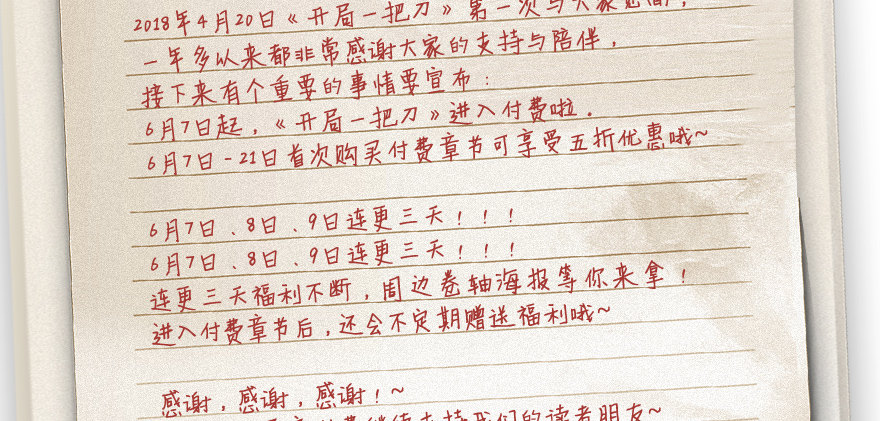 2018年4月20日《开局一把刀》第一次与大家见面，
一年多以来都非常感谢大家的支持与陪伴，
接下来有个重要的事情要宣布：
6月7日起，《开局一把刀》进入付费啦．
6月7日-21日首次购买付费章节可享受五折优惠哦~
6月7日、8日、9日连更三天！！！
6月7日、8日、9日连更三天！！！
连更三天福利不断，周边卷轴海报等你来拿！
进入付费章节后，还会不定期赠送福利哦~
感谢，感谢，感谢！~
继续支持我们的读者朋友~